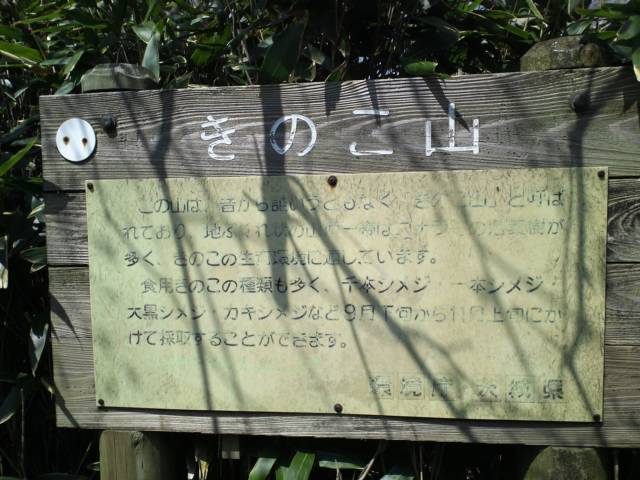 きのこ山
この山は、昔から誰いうともなく「きのこ山」と呼ば
れており、地
多く、きのこの生育環境に適しています。
食用きのこの種類も多く、千本シメジ・一本シメジ・
大黒シメジ・カキシメジなど9月下旬から11月上旬にか
けて採取することができます。
環境庁・茨城県